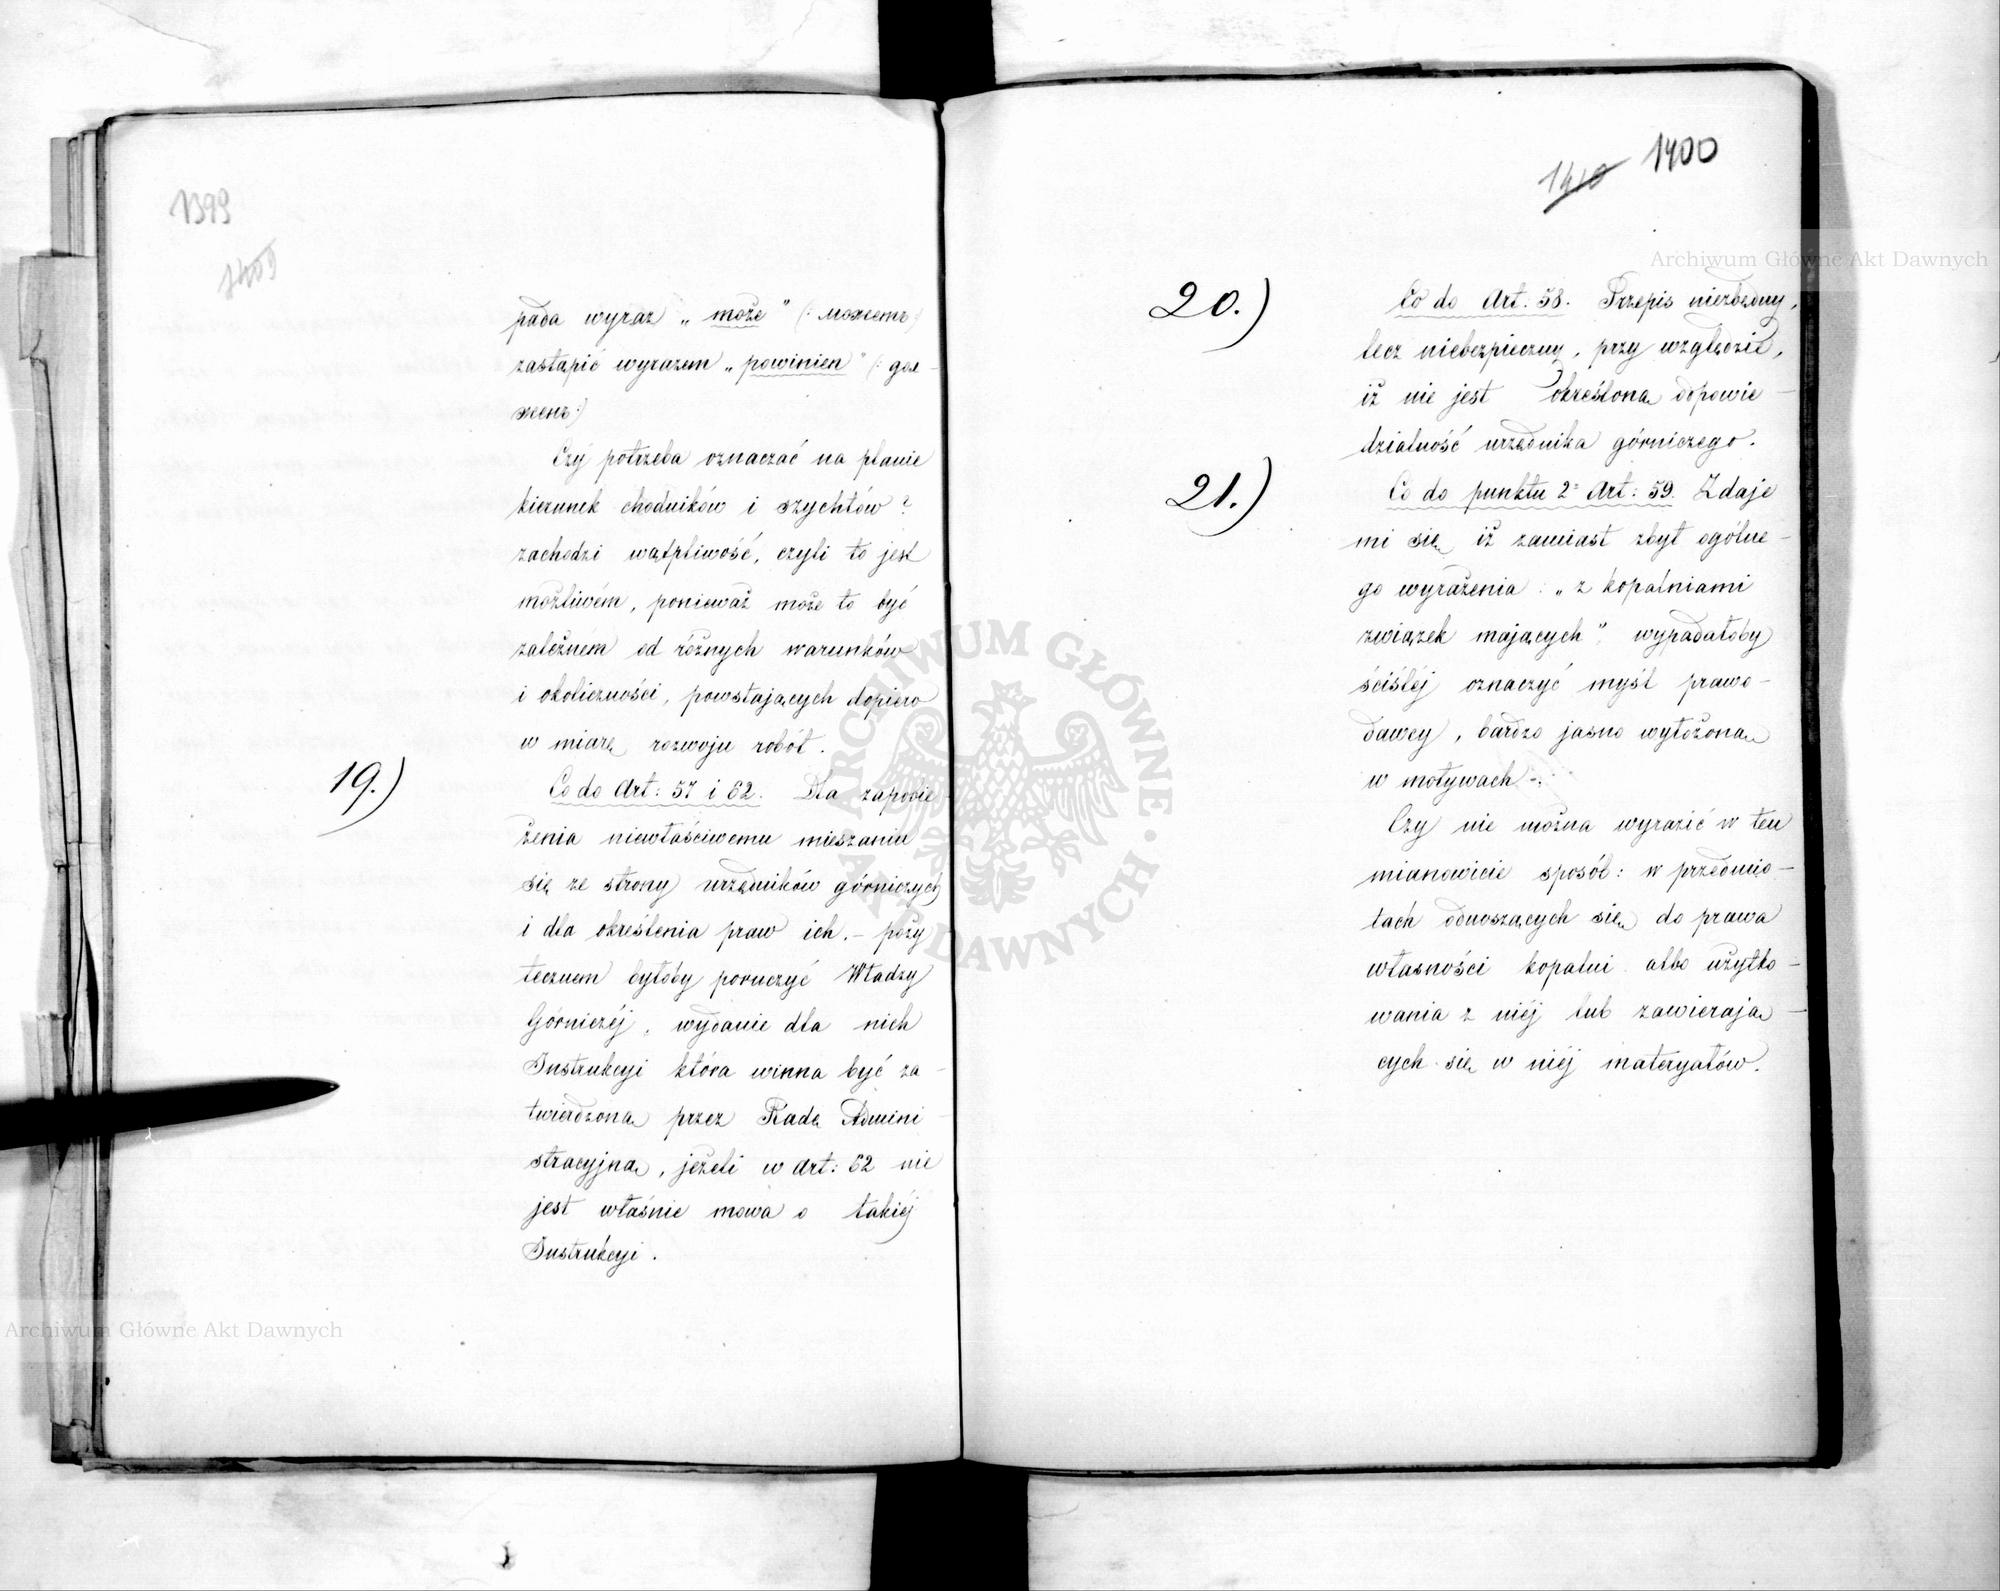 1399
1409
pada wyraz „może" (: можетъ:)
zastąpić wyrazem „powinien" (: дол-
женъ:)
Czy potrzeba oznaczać na planie
kierunek chodników i szychtów?
zachodzi wątpliwość, czyli to jest
możliwém, ponieważ może to być
zależnem od różnych warunków
i okoliczności, powstających dopiero
w miarę rozwoju robót.
19.)
Co do Art: 57 i 62. Dla zapobie-
żenia niewłaściwemu mieszaniu
się ze strony urzędników górniczych
i dla określenia praw ich. – poży
tecznem byłoby poruczyć Władzy
Górniczéj, wydanie dla nich
Instrukcyi która winna być za-
twierdzoną przez Radę Admini-
stracyjną, jeżeli w Art: 62 nie
jest właśnie mowa o takiéj
Instrukcyi.
1410 1400
20.)
Co do Art: 58. Przepis niezbędny,
lecz niebezpieczny, przy względzie,
iż nie jest określoną odpowie-
dzialność urzędnika górniczego.
21.)
Co do punktu 2º Art: 59. Zdaje
mi się iż zamiast zbyt ogólne-
go wyrażenia: „z kopalniami
związek mających" wypadałoby
ściśléj oznaczyć myśl prawo-
dawcy, bardzo jasno wyłożoną
w motywach –.
Czy nie można wyrazić w ten
mianowicie sposób: w przedmio-
tach odnoszących się do prawa
własności kopalni albo użytko-
wania z niéj lub zawierają-
cych się w niéj materyałów.
Archiwum Główne Akt Dawnych
ARCHIWUM GŁÓWNE AKT DAWNYCH
Archiwum Główne Akt Dawnych